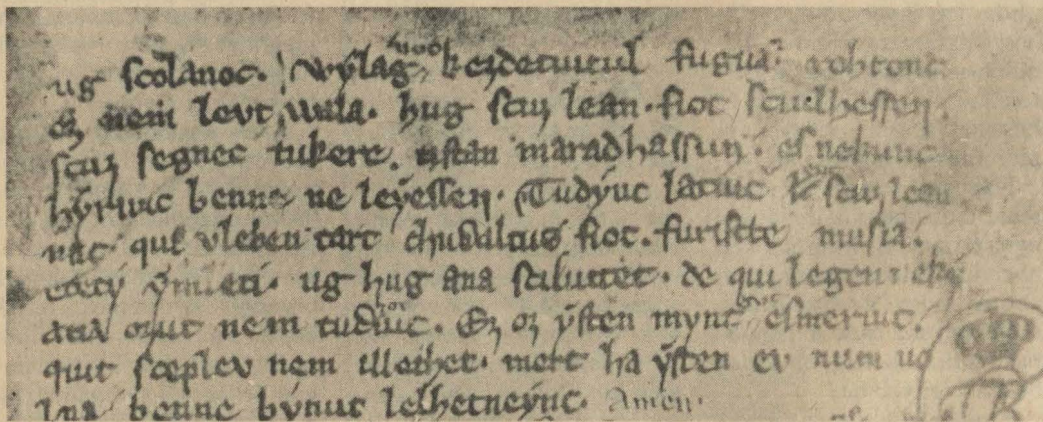 ug ſcolanoc. wylag uod kezdetuitul fugua rohtonc
ez nem levt wala. hug ſcuz lean. fiot ſciulheſſen.
ſcuz ſegnec tukere. tiſtan maradhaſſun. eſ nekunc
hyrunc benne ne leyeſſen. Tudyuc latiuc ſcuz lean
nac qui vleben tart chudaltus fiot. furiſcte muſia.
etety ymleti. ug hug ana ſciluttet. de qui legen neky
atia ozut nem tudiuc. Ez oz yſten mynt eſmeriuc.
quit ſceplev nem illethet. mert ha yſten ev num uo
lna benne bynut lelhetneync. Amen.